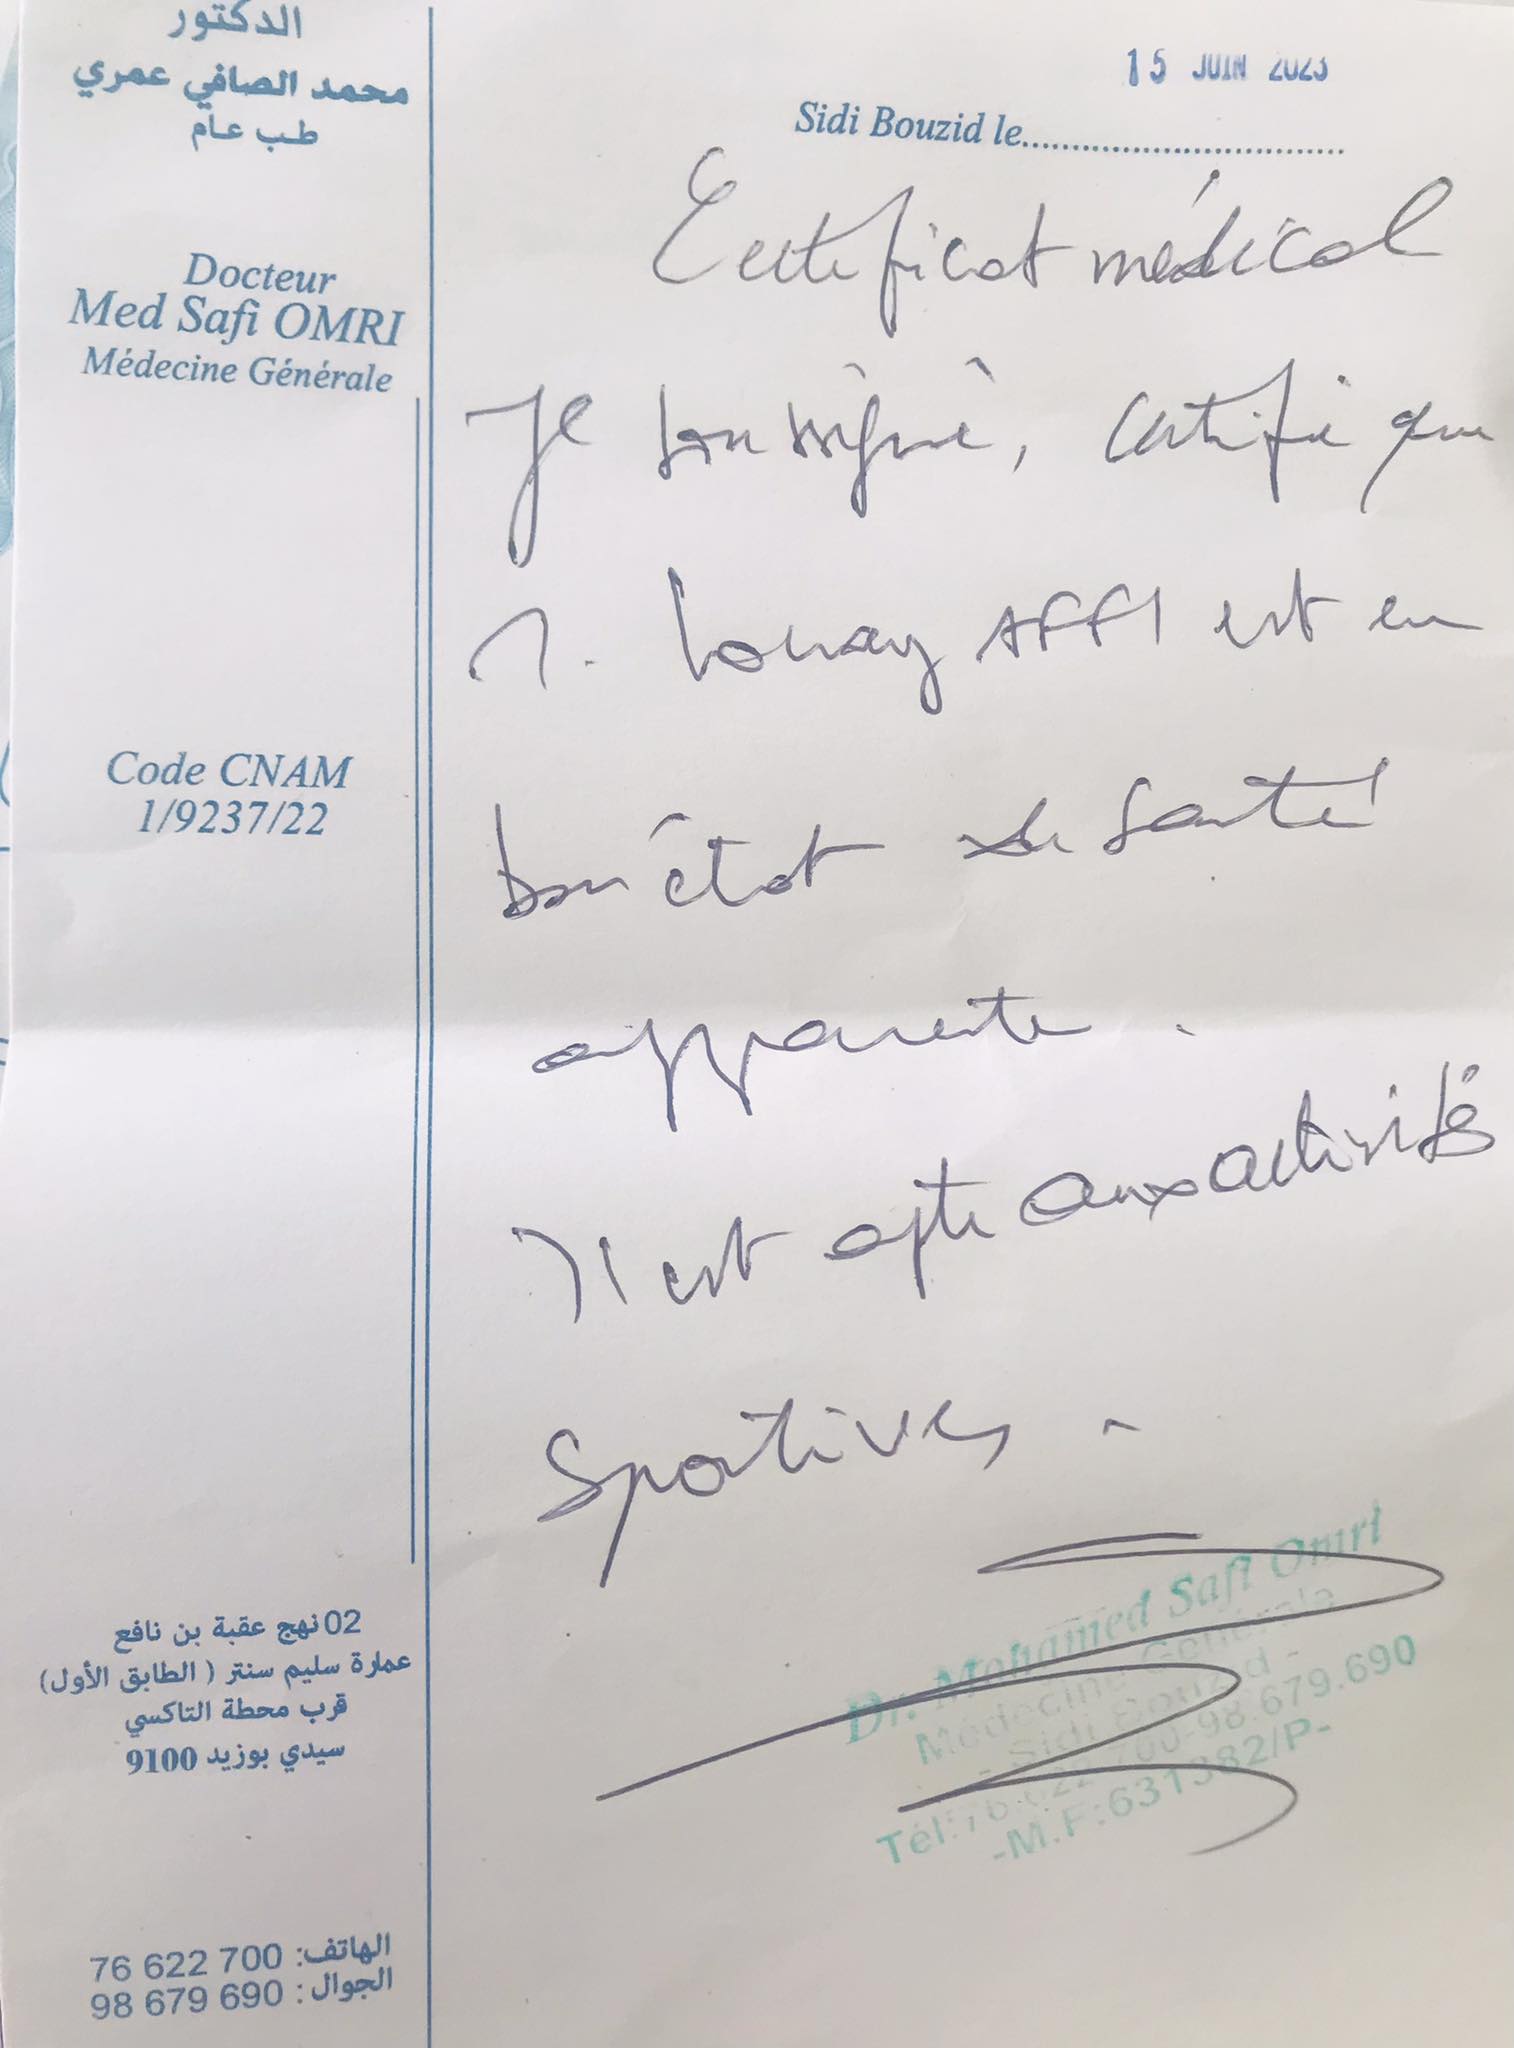 الدكتور
محمد الصافي عمري
طب عام
Docteur
Med Safi OMRI
Médecine Générale
Code CNAM
1/9237/22
02 نهج عقبة بن نافع
عمارة سليم سنتر (الطابق الأول)
قرب محطة التاكسي
سيدي بوزيد 9100
الهاتف: 76 622 700
الجوال: 98 679 690
15 JUIN 2023
Sidi Bouzid le
Certificat médical
Je soussigné, certifie que
Louay AFFI est en
bon état de santé
apparente.
Il est apte aux activités
Sportives.
Dr. Mohamed Safi Omri
Médecine Générale
- Sidi Bouzid -
Tél: 76.622.700-98.679.690
-M.F:631382/P-